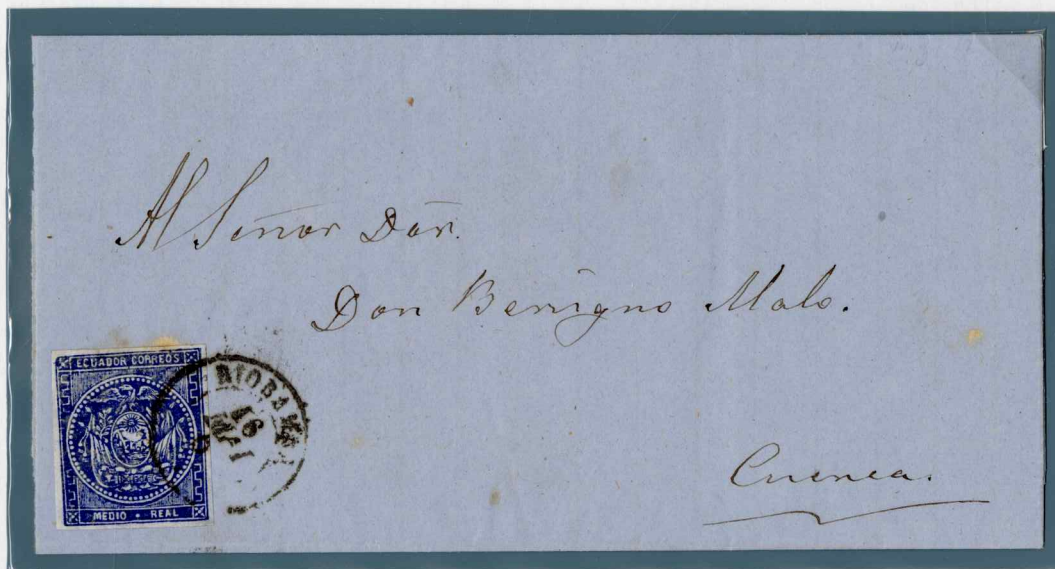 Al Señor Dor.
Don Benigno Malo.
Cuenca.
ECUADOR CORREOS
MEDIO • REAL
RIOBAMBA